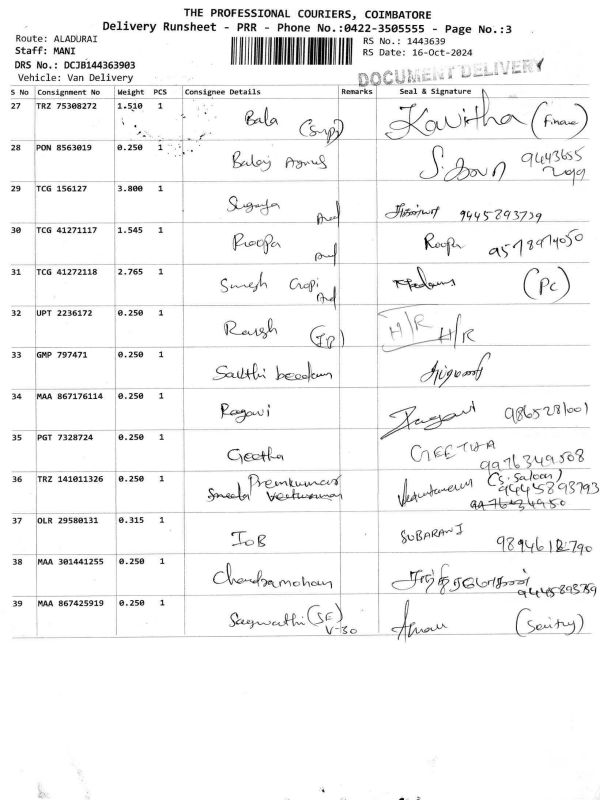 THE PROFESSIONAL COURIERS, COIMBATORE
Delivery Runsheet - PRR - Phone No.:0422-3505555 - Page No.:3
Route: ALADURAI
Staff: MANI
DRS No.: DCJB144363903
Vehicle: Van Delivery
RS No.: 1443639
RS Date: 16-Oct-2024
DOCUMENT DELIVERY
S No Consignment No Weight PCS Consignee Details Remarks Seal & Signature
27 TRZ 75308272 1.510 1 Bala Kavitha (Finance)
28 PON 8563019 0.250 1 Balaji 9443655
29 TCG 156127 3.800 1 9445893739
30 TCG 41271117 1.545 1 Roopa Roopa 9578974050
31 TCG 41272118 2.765 1 Suresh Gopi (PC)
32 UPT 2236172 0.250 1 H/R H/R
33 GMP 797471 0.250 1 Sakthi
34 MAA 867176114 0.250 1 Ragavi Ragavi 9865281001
35 PGT 7328724 0.250 1 Geetha GEETHA
9976349508
36 TRZ 141011326 0.250 1 Premkumar (S. Saloon)
9445893793
37 OLR 29580131 0.315 1 IOB SUBARANJ 9894612790
38 MAA 301441255 0.250 1 Chandramohan சந்திரமோகன்
9445893759
39 MAA 867425919 0.250 1 (SE)
V-30